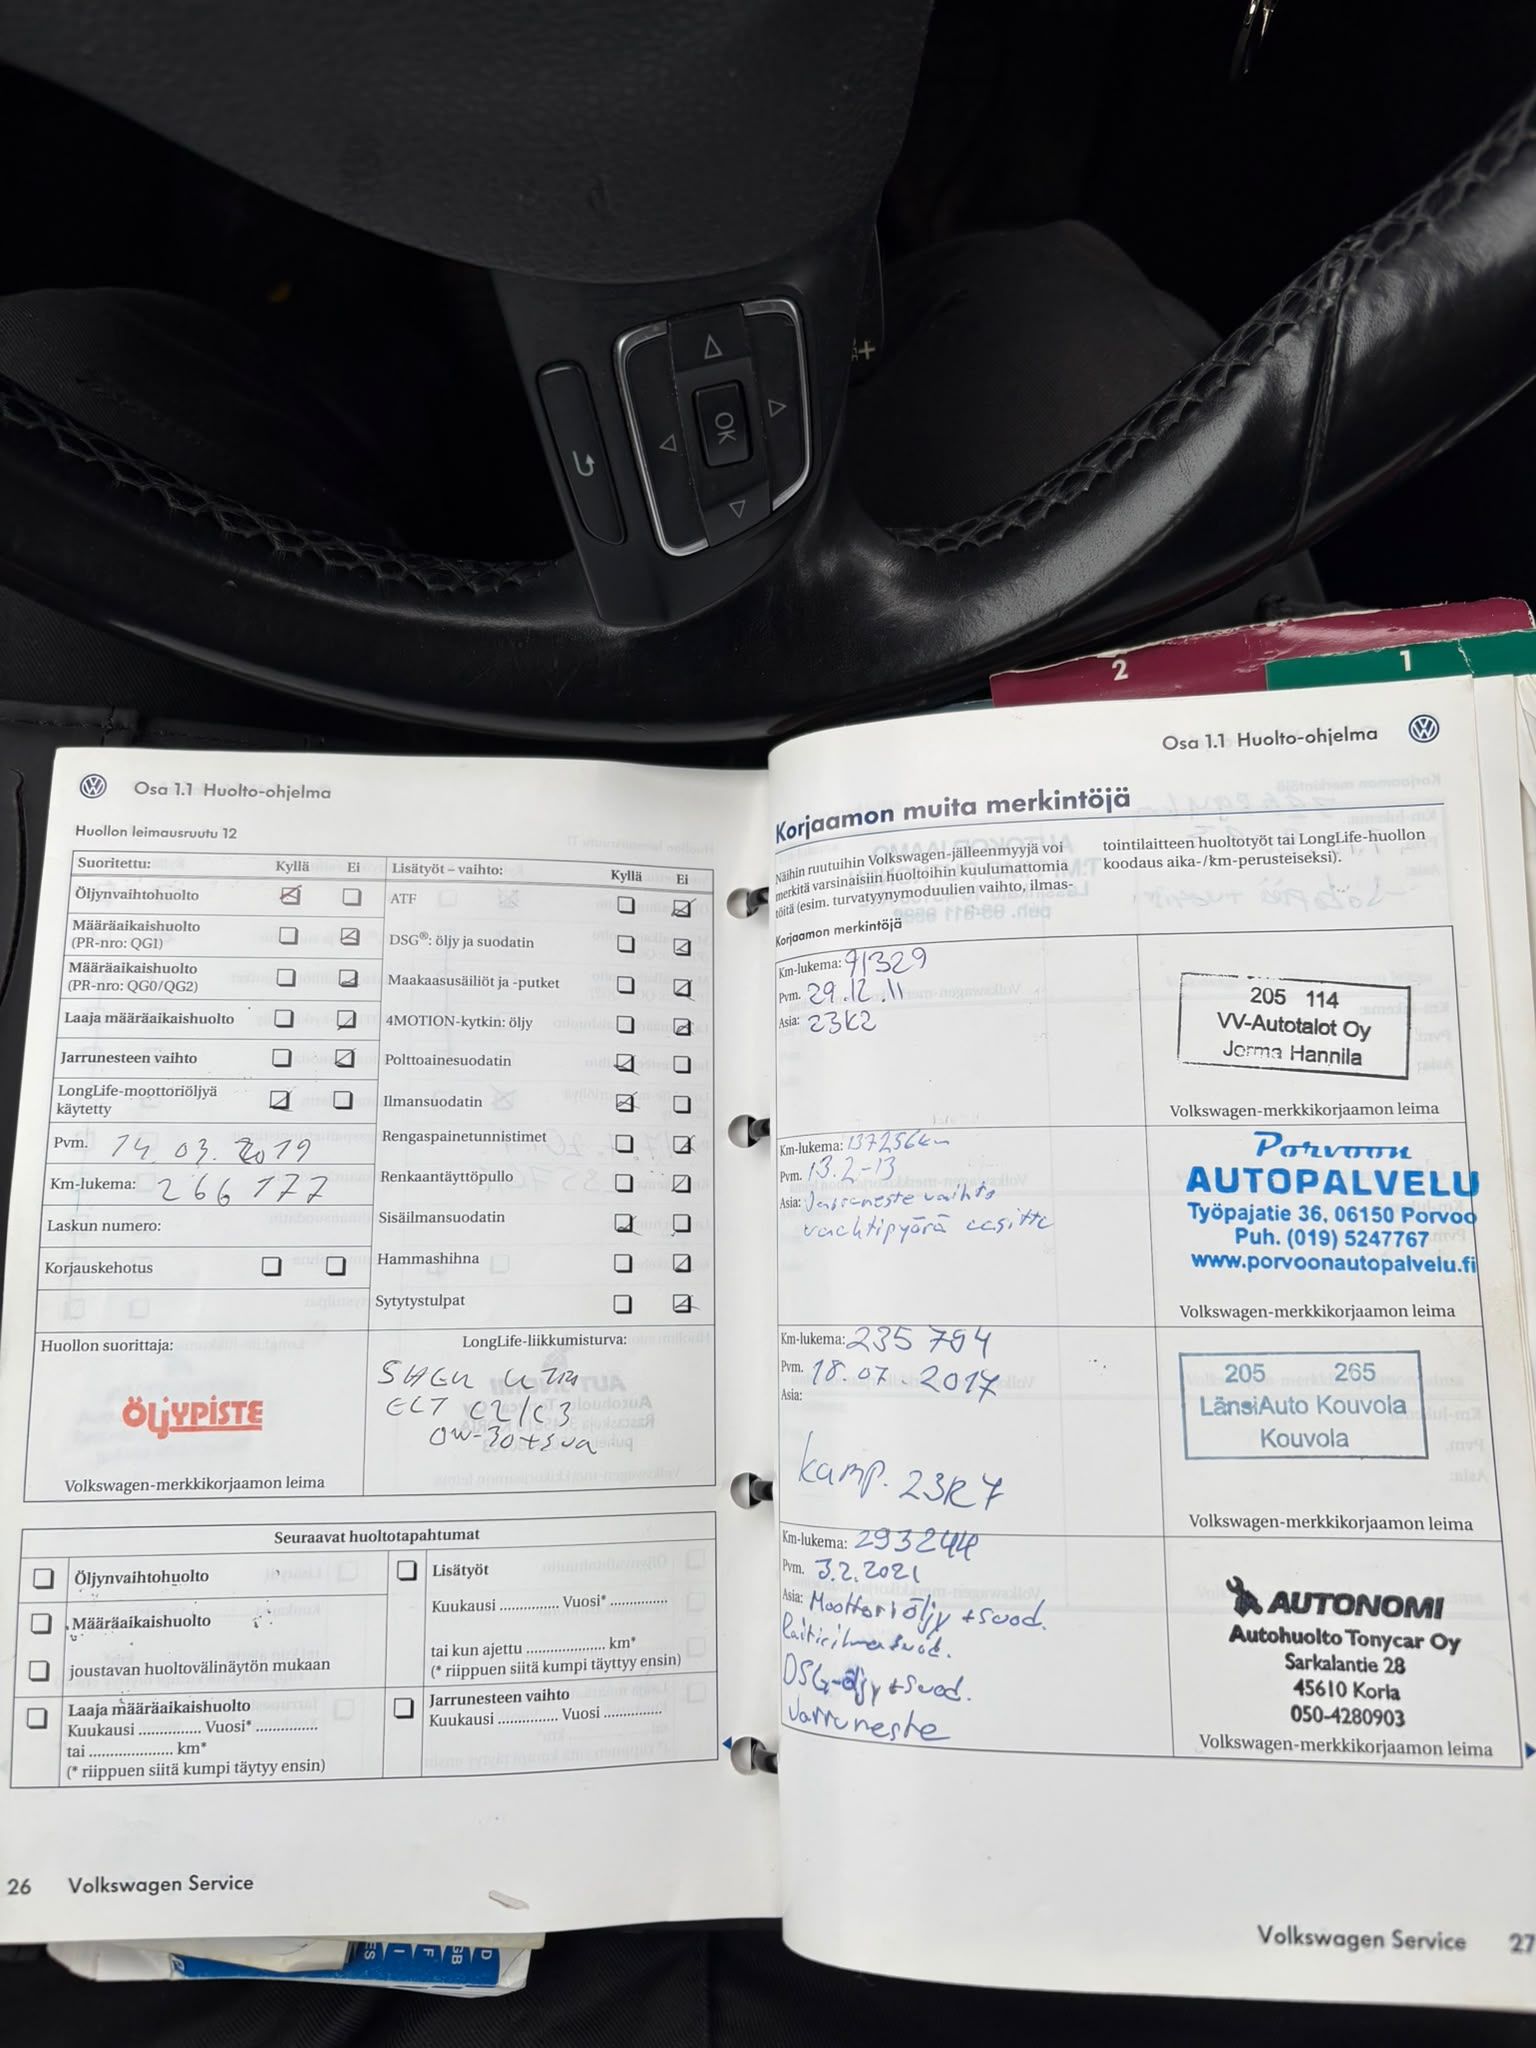 OK
2
1
Osa 1.1 Huolto-ohjelma
Huollon leimausruutu 12
Suoritettu: Kyllä Ei
Öljynvaihtohuolto
Määräaikaishuolto
(PR-nro: QG1)
Määräaikaishuolto
(PR-nro: QG0/QG2)
Laaja määräaikaishuolto
Jarrunesteen vaihto
LongLife-moottoriöljyä
käytetty
Pvm. 14.03.2019
Km-lukema: 266 177
Laskun numero:
Korjauskehotus
Lisätyöt – vaihto: Kyllä Ei
ATF
DSG®: öljy ja suodatin
Maakaasusäiliöt ja -putket
4MOTION-kytkin: öljy
Polttoainesuodatin
Ilmansuodatin
Rengaspainetunnistimet
Renkaantäyttöpullo
Sisäilmansuodatin
Hammashihna
Sytytystulpat
Huollon suorittaja:
ÖLJYPISTE
Volkswagen-merkkikorjaamon leima
LongLife-liikkumisturva:
ECT C2/C3
0W-30
Seuraavat huoltotapahtumat
Öljynvaihtohuolto
Määräaikaishuolto
joustavan huoltovälinäytön mukaan
Laaja määräaikaishuolto
Kuukausi .............. Vuosi* ..............
tai .................... km*
(* riippuen siitä kumpi täytyy ensin)
Lisätyöt
Kuukausi ............. Vuosi* .............
tai kun ajettu ................... km*
(* riippuen siitä kumpi täyttyy ensin)
Jarrunesteen vaihto
Kuukausi ............. Vuosi .............
26 Volkswagen Service
Osa 1.1 Huolto-ohjelma
Korjaamon muita merkintöjä
Näihin ruutuihin Volkswagen-jälleenmyyjä voi
merkitä varsinaisiin huoltoihin kuulumattomia
töitä (esim. turvatyynymoduulien vaihto, ilmas-
tointilaitteen huoltotyöt tai LongLife-huollon
koodaus aika-/km-perusteiseksi).
Korjaamon merkintöjä
Km-lukema: 91329
Pvm. 29.12.11
Asia: 23K2
205 114
VV-Autotalot Oy
Jorma Hannila
Volkswagen-merkkikorjaamon leima
Km-lukema: 137256km
Pvm. 13.2-13
Asia: Jarruneste vaihto
Porvoon
AUTOPALVELU
Työpajatie 36, 06150 Porvoo
Puh. (019) 5247767
www.porvoonautopalvelu.fi
Volkswagen-merkkikorjaamon leima
Km-lukema: 235 794
Pvm. 18.07.2017
Asia:
kamp. 23R7
205 265
LänsiAuto Kouvola
Kouvola
Volkswagen-merkkikorjaamon leima
Km-lukema: 293244
Pvm. 3.2.2021
Asia: Moottoriöljy + suod.
Raitisilmasuod.
DSG-öljy + suod.
Jarruneste
AUTONOMI
Autohuolto Tonycar Oy
Sarkalantie 28
45610 Koria
050-4280903
Volkswagen-merkkikorjaamon leima
Volkswagen Service 27
ES I F GB D